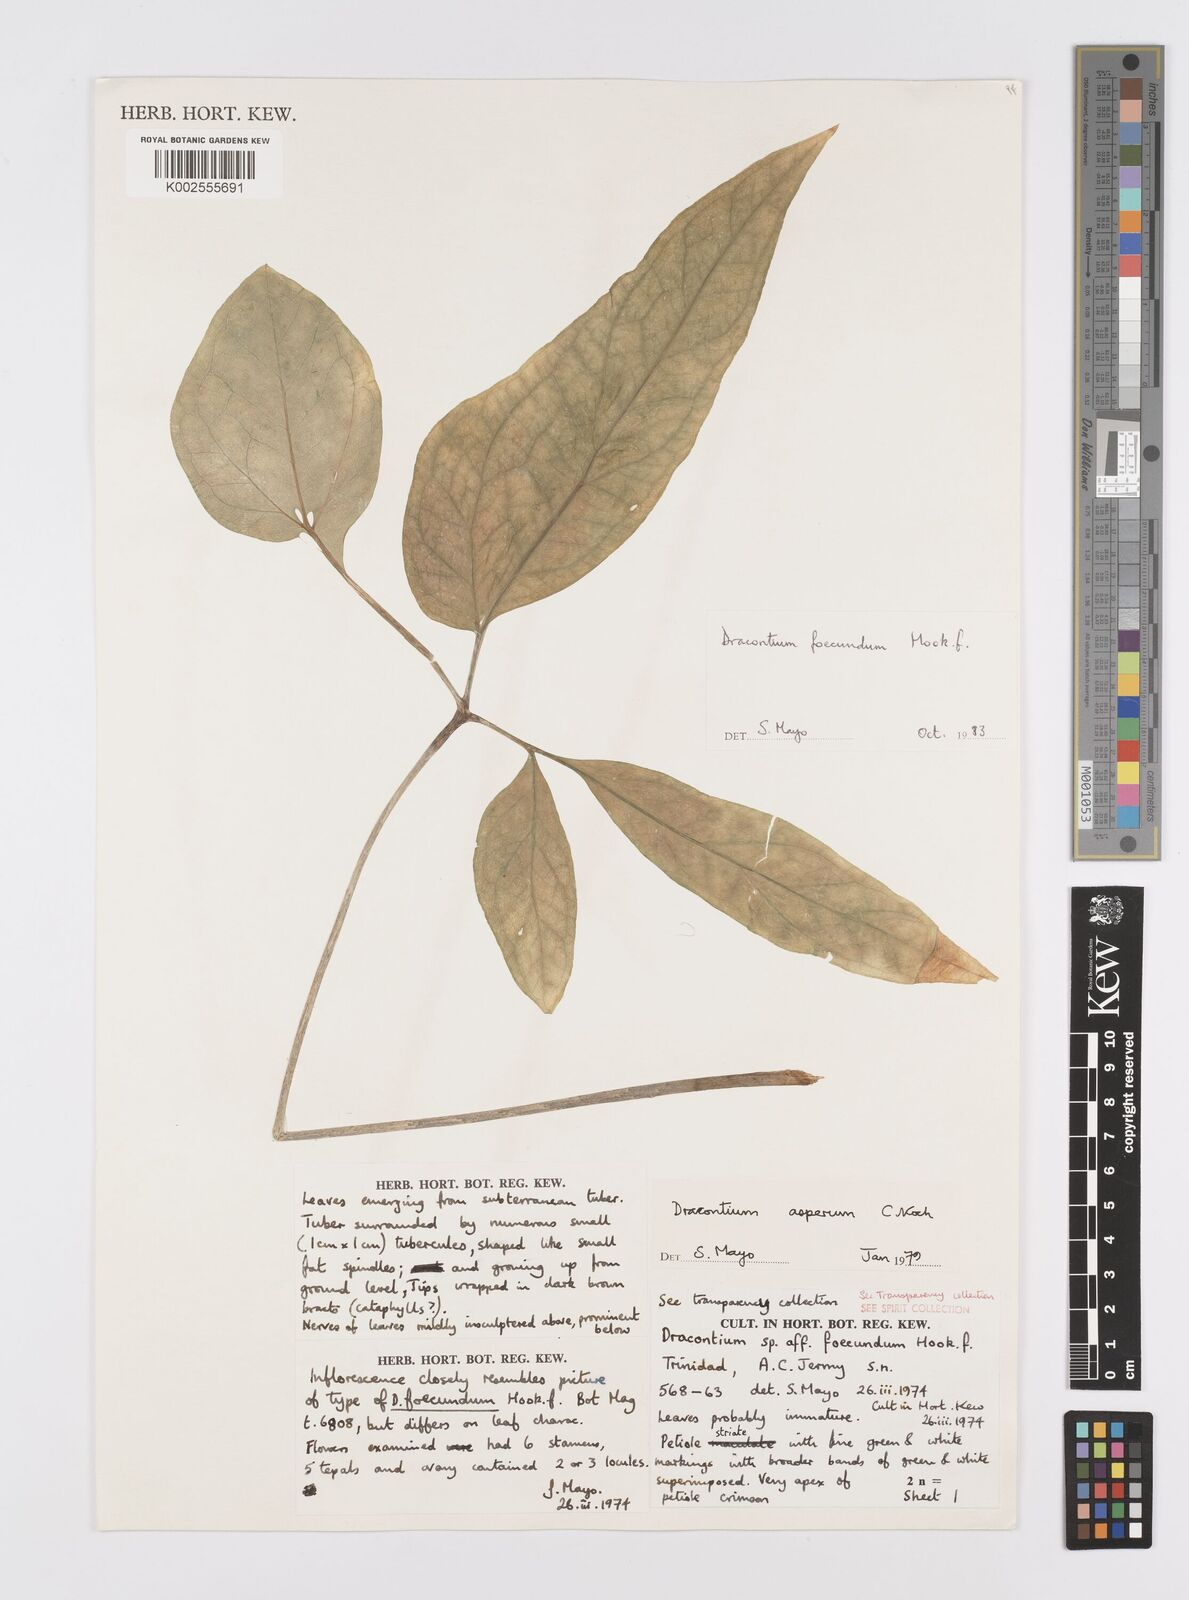 HERB. HORT. KEW.
ROYAL BOTANIC GARDENS KEW
K002555691
Dracontium foecundum Hook.f.
DET S. Mayo Oct. 1983
HERB. HORT. BOT. REG. KEW.
Leaves emerging from subterranean tuber.
Tuber surrounded by numerous small
(1cm x 1cm) tubercules, shaped like small
fat spindles; and growing up from
ground level, Tips wrapped in dark brown
bracts (cataphylls?).
Nerves of leaves mildly insculptered above, prominent
below
HERB. HORT. BOT. REG. KEW.
Inflorescence closely resembles picture
of type of D. foecundum Hook.f. Bot Mag
t. 6808, but differs on leaf charac.
Flowers examined were had 6 stamens,
5 tepals and ovary contained 2 or 3 locules.
S. Mayo.
26.iii.1974
Dracontium asperum C. Koch
DET S. Mayo Jan 1979
See transparency collection
See Transparency collection
SEE SPIRIT COLLECTION
CULT. IN HORT. BOT. REG. KEW.
Dracontium sp. aff. foecundum Hook.f.
Trinidad, A.C. Jermy s.n.
568-63 det. S. Mayo 26.iii.1974
Cult in Hort. Kew
Leaves probably immature. 26.iii.1974
striate
Petiole maculate with fine green & white
markings with broader bands of green & white
superimposed. Very apex of 2n =
petiole crimson Sheet 1
inches
Density
Don Williams
centimeters
M001053
Royal Botanic Gardens
Kew
copyright reserved
0 1 2 3 4 5 6 7 8 9 10
cm